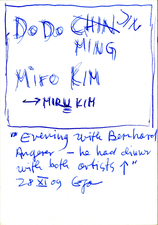 DODO CHIN JIN
MING
MIRO KIM
→ MIRU KIM
"Evening with Bernhard
Angerer – he had dinner
with both artists ↑"
28 XI 09